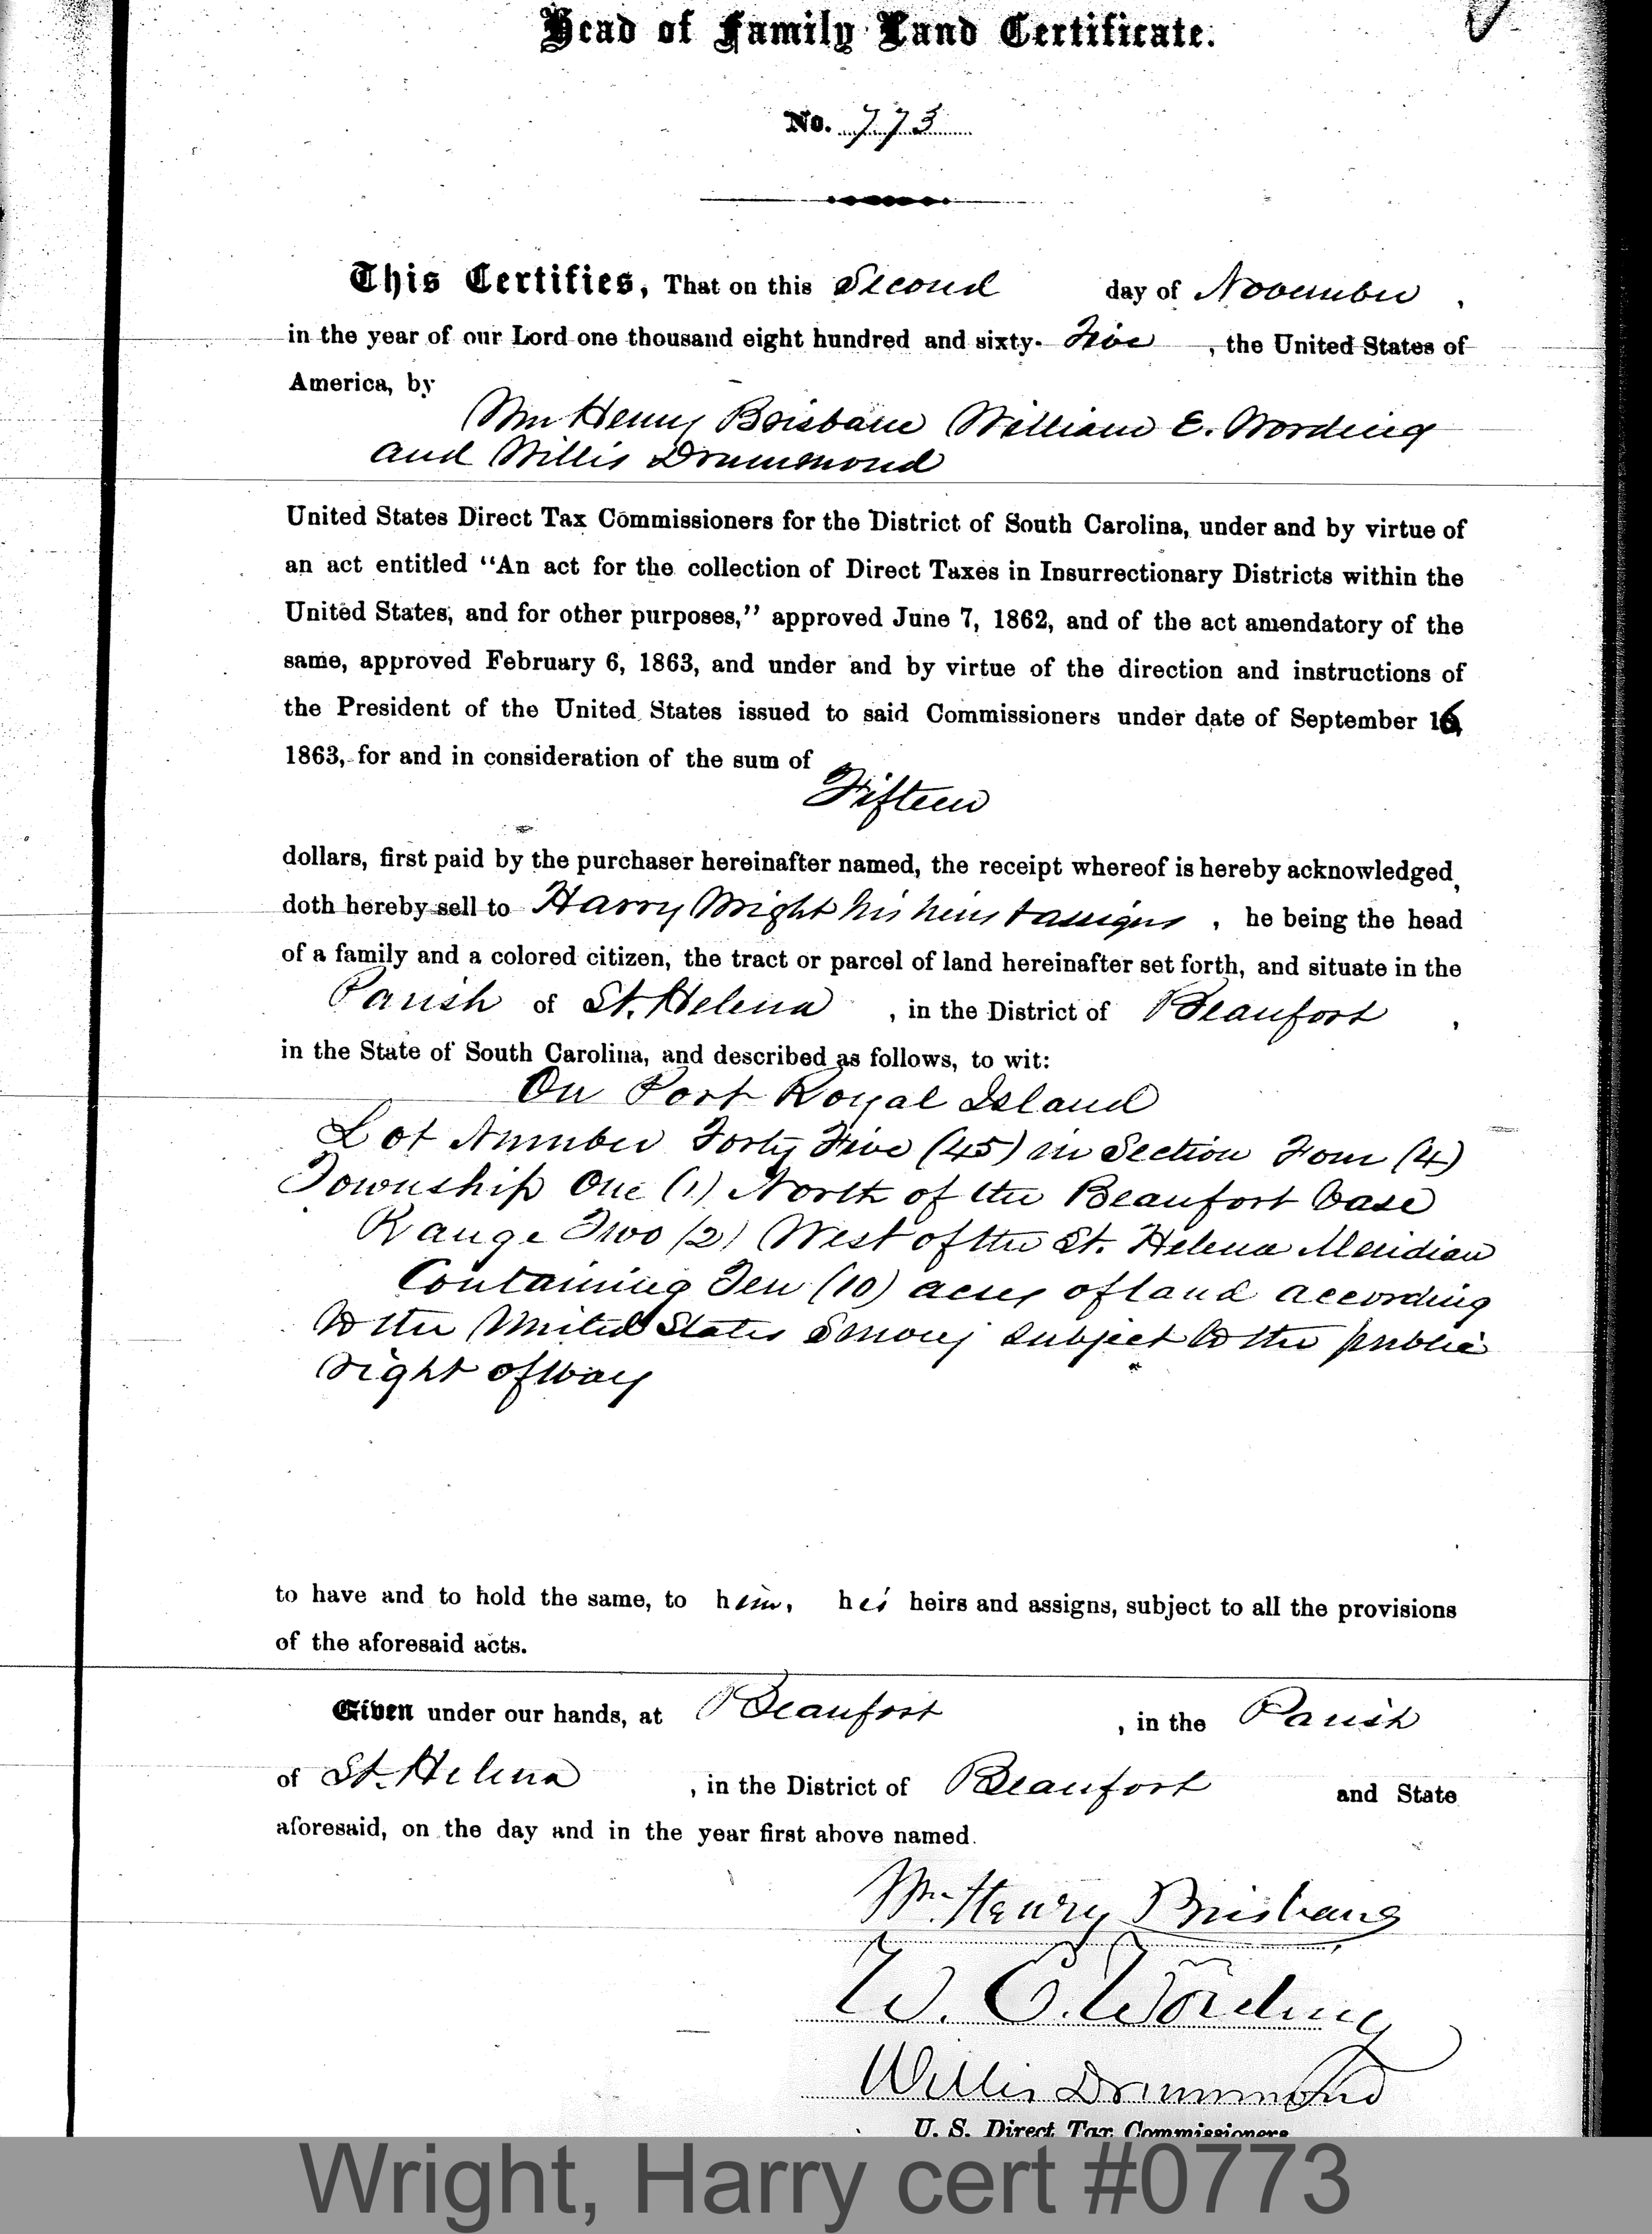 Head of Family Land Certificate.
No. 773
This Certifies, That on this Second day of November,
in the year of our Lord one thousand eight hundred and sixty-Five, the United States of
America, by
Wm Henry Brisbane William E. Wording
and Willis Drummond
United States Direct Tax Commissioners for the District of South Carolina, under and by virtue of
an act entitled "An act for the collection of Direct Taxes in Insurrectionary Districts within the
United States, and for other purposes," approved June 7, 1862, and of the act amendatory of the
same, approved February 6, 1863, and under and by virtue of the direction and instructions of
the President of the United States issued to said Commissioners under date of September 16,
1863, for and in consideration of the sum of
Fifteen
dollars, first paid by the purchaser hereinafter named, the receipt whereof is hereby acknowledged,
doth hereby sell to Harry Wright his heirs & assigns, he being the head
of a family and a colored citizen, the tract or parcel of land hereinafter set forth, and situate in the
Parish of St. Helena, in the District of Beaufort,
in the State of South Carolina, and described as follows, to wit:
On Port Royal Island
Lot Number Forty Five (45) in Section Four (4)
Township One (1) North of the Beaufort base
Range Two (2) West of the St. Helena Meridian
Containing Ten (10) acres of land according
to the United States Survey subject to the public
right of way
to have and to hold the same, to him, his heirs and assigns, subject to all the provisions
of the aforesaid acts.
Given under our hands, at Beaufort, in the Parish
of St. Helena, in the District of Beaufort and State
aforesaid, on the day and in the year first above named.
Wm. Henry Brisbane
W. E. Wording
Willis Drummond
U. S. Direct Tax Commissioners
Wright, Harry cert #0773